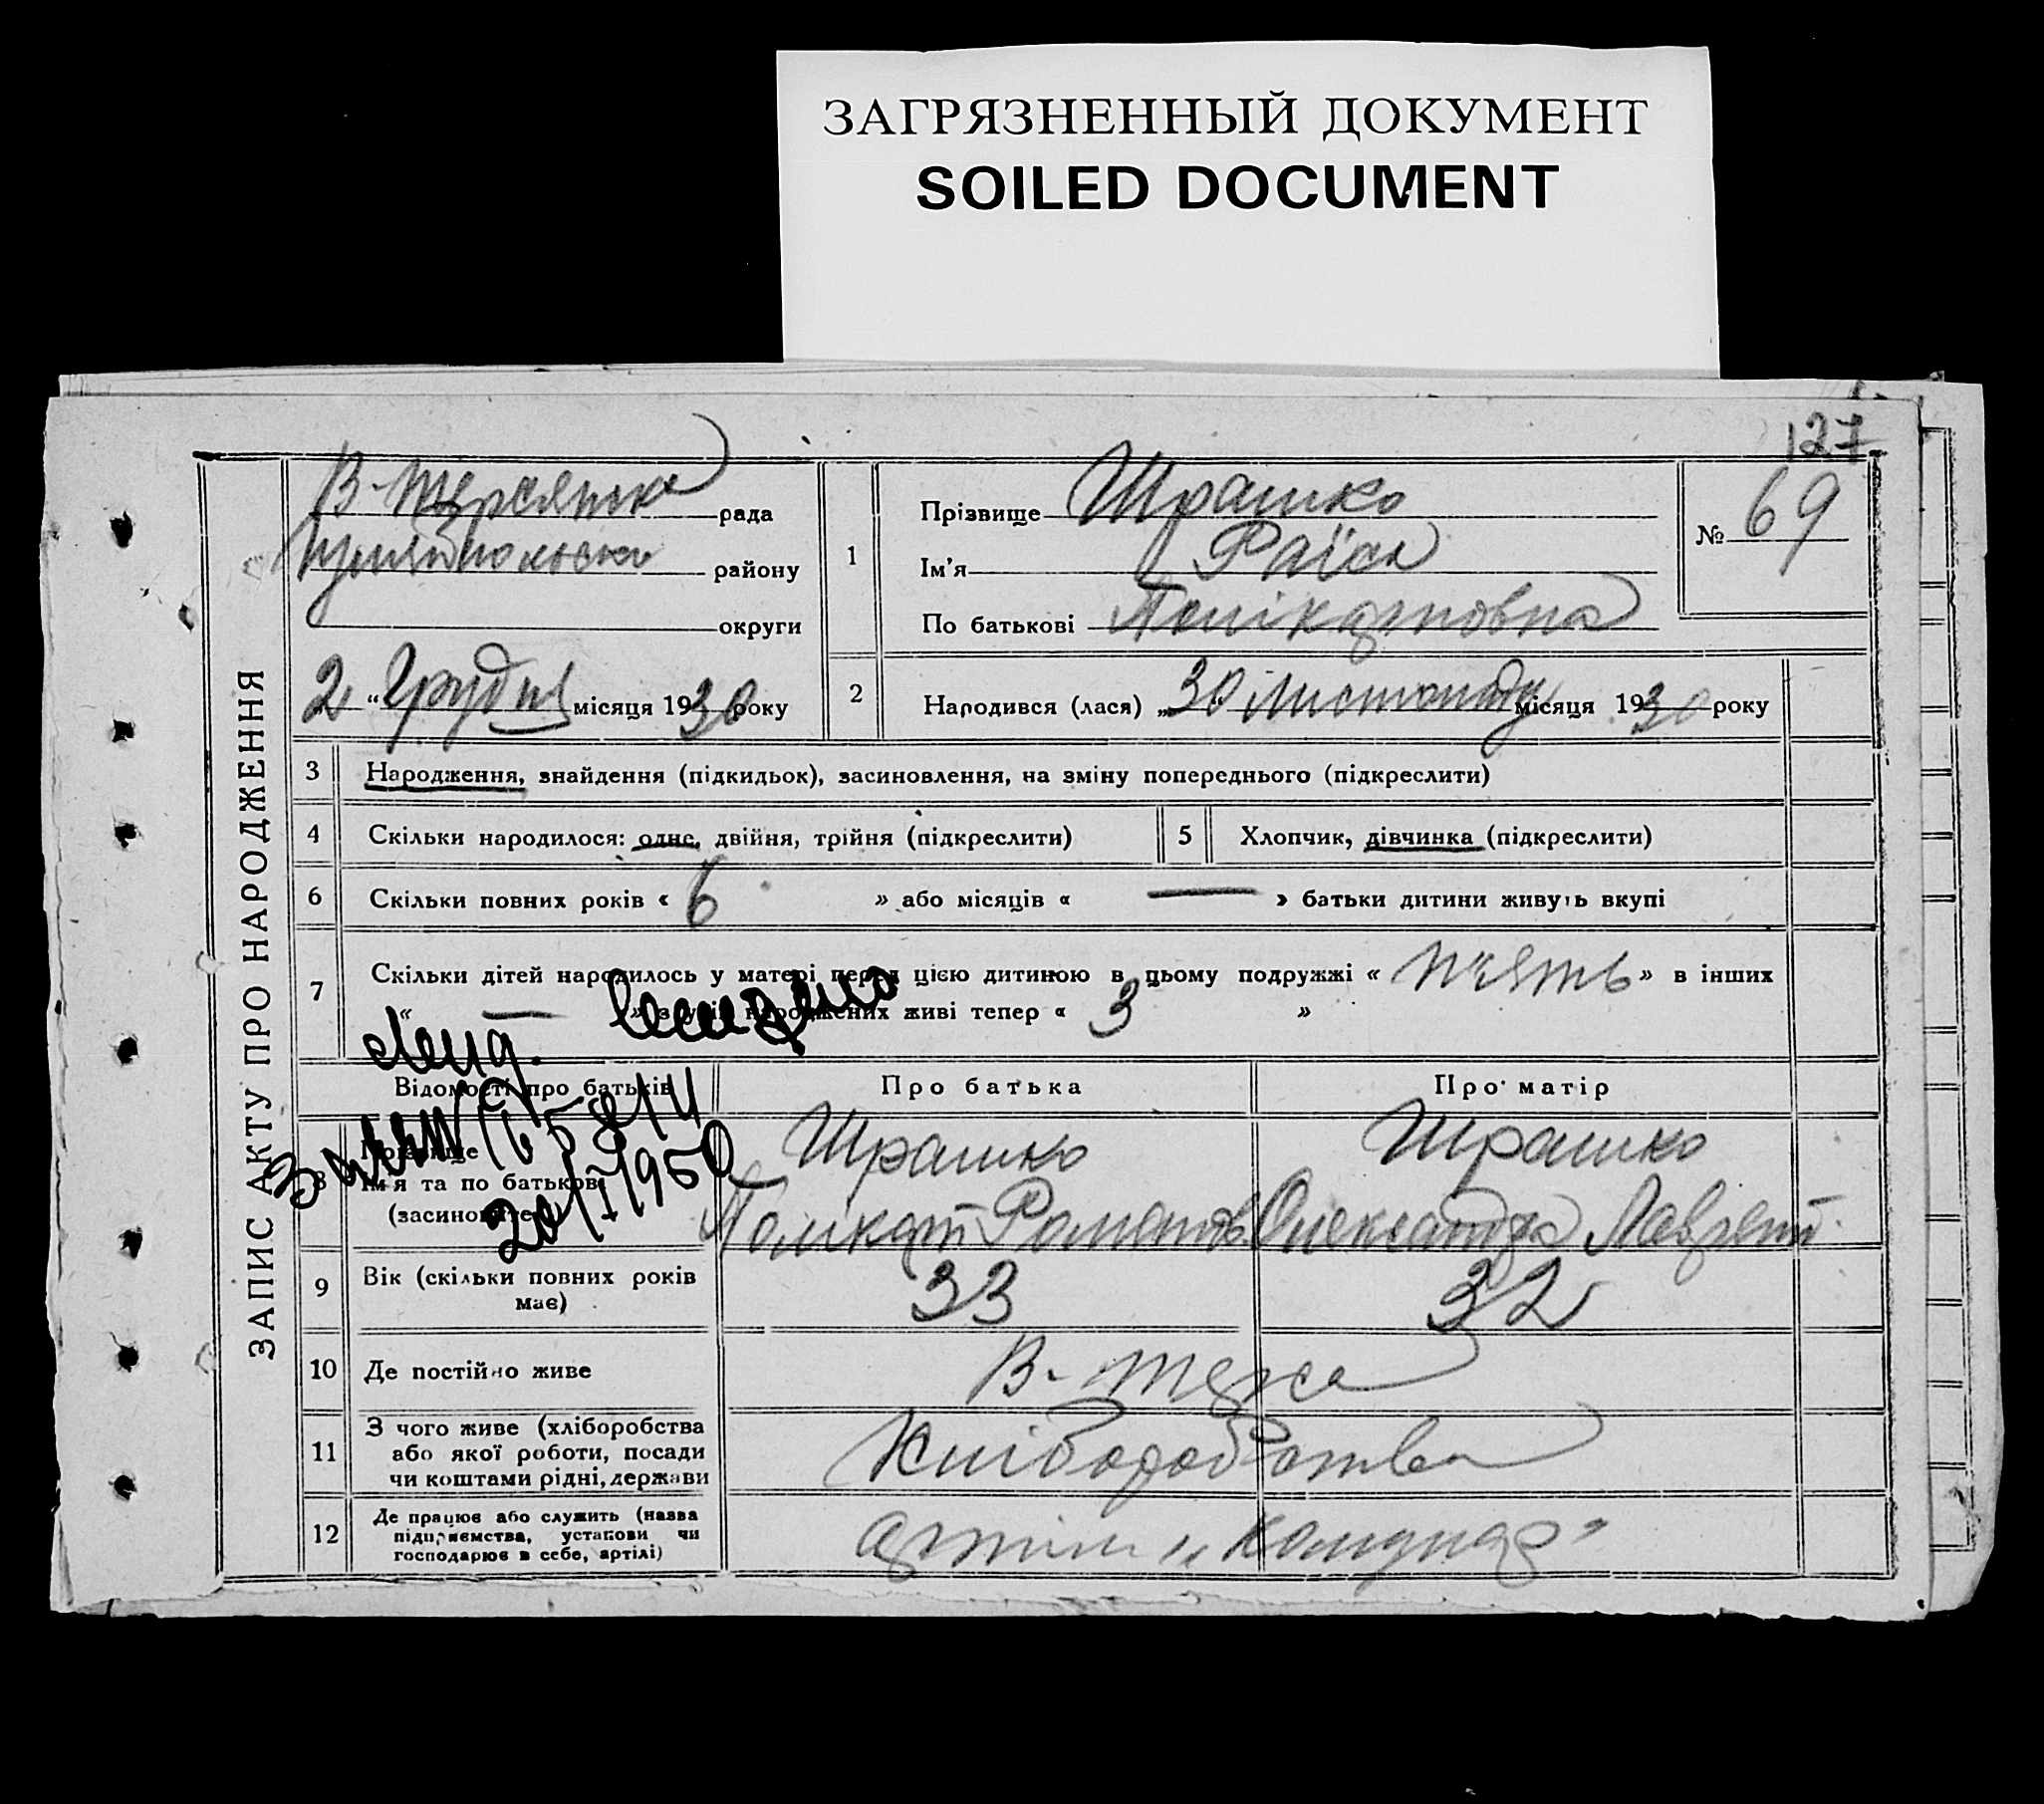 ЗАГРЯЗНЕННЫЙ ДОКУМЕНТ
SOILED DOCUMENT
127
ЗАПИС АКТУ ПРО НАРОДЖЕННЯ
В-Терсянська рада
району
округи
2 " Грудня місяця 1930 року
1
Прізвище Шрамко
Ім'я Раїса
По батькові Полікарповна
№ 69
2
Народився (лася) „ 30 Листопаду місяця 1930 року
3 Народження, знайдення (підкидьок), засиновлення, на зміну попереднього (підкреслити)
4 Скільки народилося: одне, двійня, трійня (підкреслити)
5 Хлопчик, дівчинка (підкреслити)
6 Скільки повних років « 6 » або місяців « — » батьки дитини живуть вкупі
7 Скільки дітей народилось у матері перед цією дитиною в цьому подружжі « п'ять » в інших
« — » з усіх народжених живі тепер « 3 »
20/I 1950
Відомості про батьків
Про батька
Про матір
8 Прізвище
Ім'я та по батькові
(засновите
Шрамко
Полікарп Романов
Шрамко
Олександра Лаврент.
9 Вік (скільки повних років має)
33
32
10 Де постійно живе
В-Терса
11 З чого живе (хліборобства
або якої роботи, посади
чи коштами рідні, держави
Хліборобства
12 Де працює або служить (назва
підприємства, установи чи
господарює в себе, артілі)
артіль